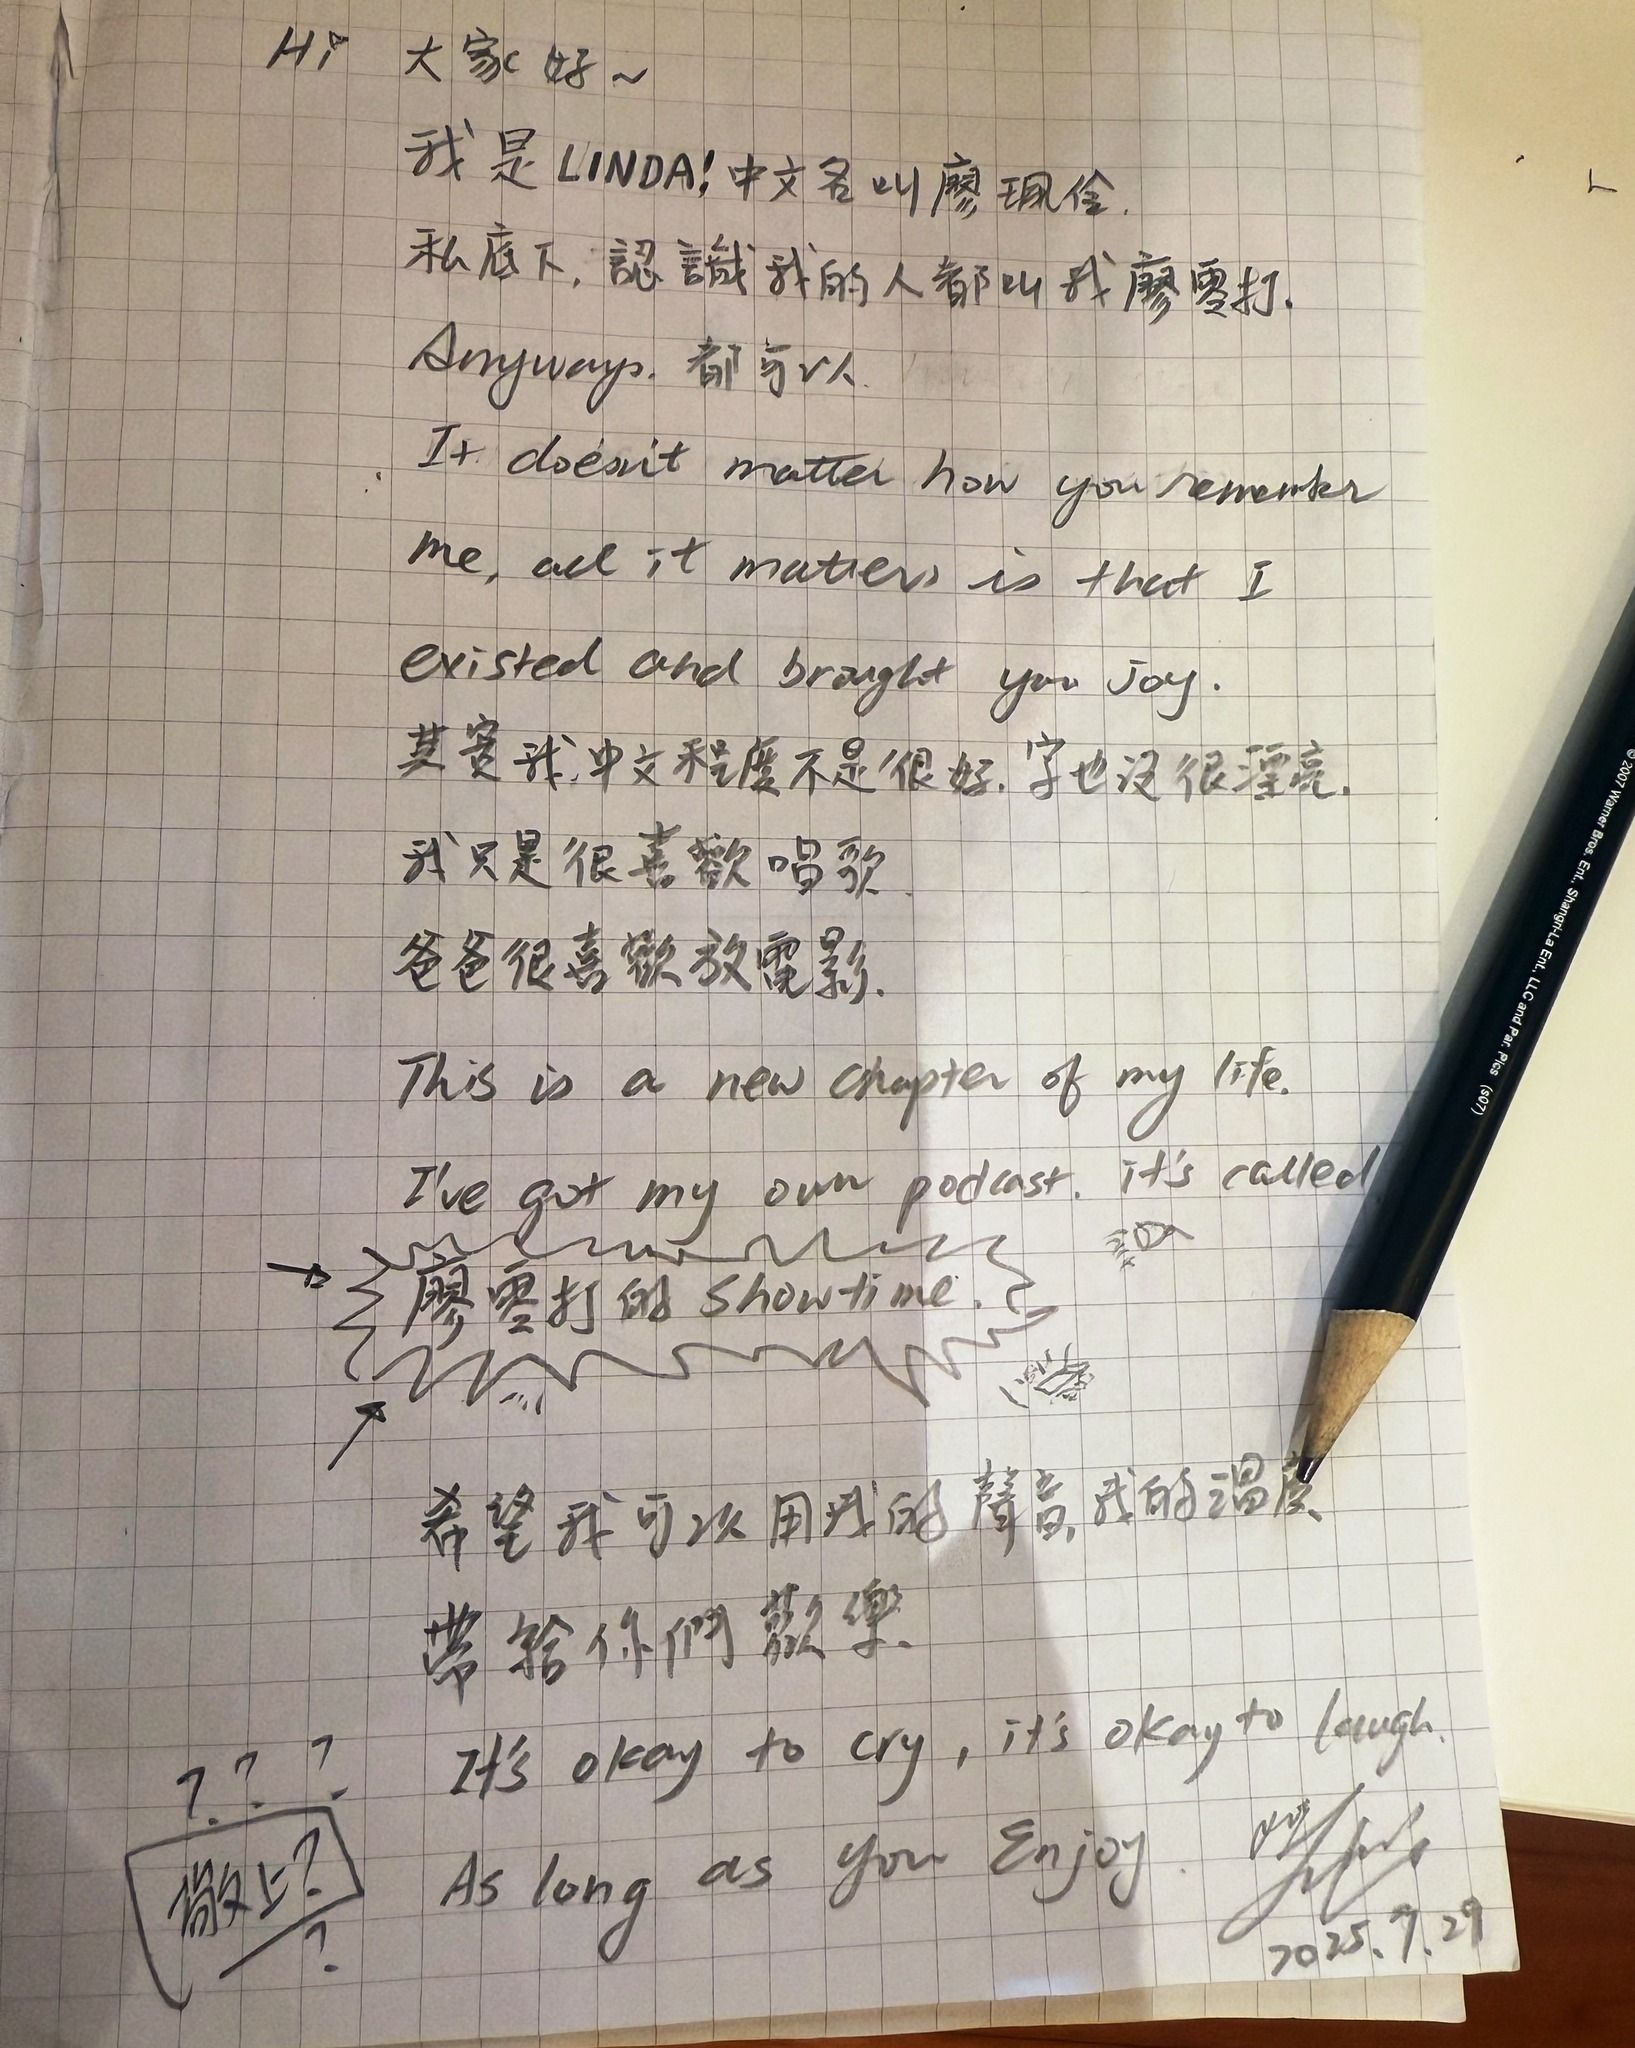 Hi 大家好~
我是LINDA!中文名叫廖珮伶.
私底下,認識我的人都叫我廖雯打.
Anyways. 都可以
It doesn't matter how you remember
me, all it matters is that I
existed and brought you joy.
其實我,中文程度不是很好.字也沒很漂亮.
我只是很喜歡唱歌
爸爸很喜歡放電影.
This is a new chapter of my life.
I've got my own podcast. it's called
廖雯打的 showtime.
希望我可以用我的聲音,我的溫度
帶給你們歡樂.
It's okay to cry, it's okay to laugh.
As long as you Enjoy.
???
敬上?
?
2025.9.29
© 2007 Warner Bros. Ent., Shangri-La Ent., LLC and Par. Pics (s07)